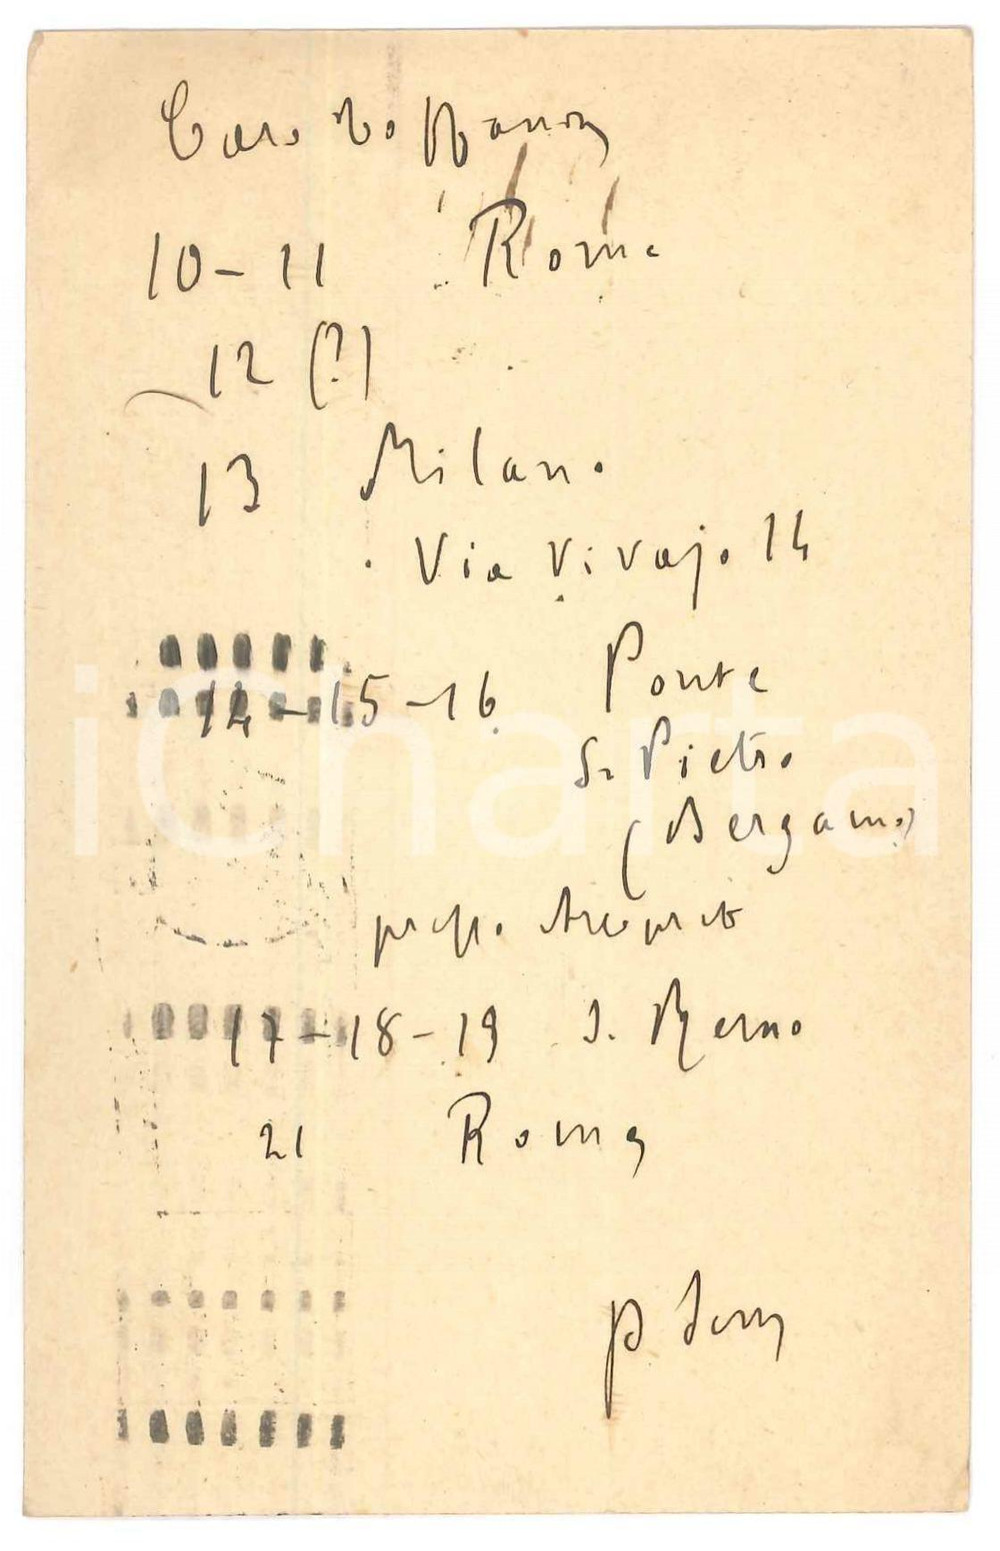 Caro Zoffanon
10-11 Roma
12 (?)
13 Milano
Via Vivajo 14
14-15-16 Ponte
S. Pietro
(Bergamo)
presso
17-18-19 S. Remo
21 Roma
p
iCharta